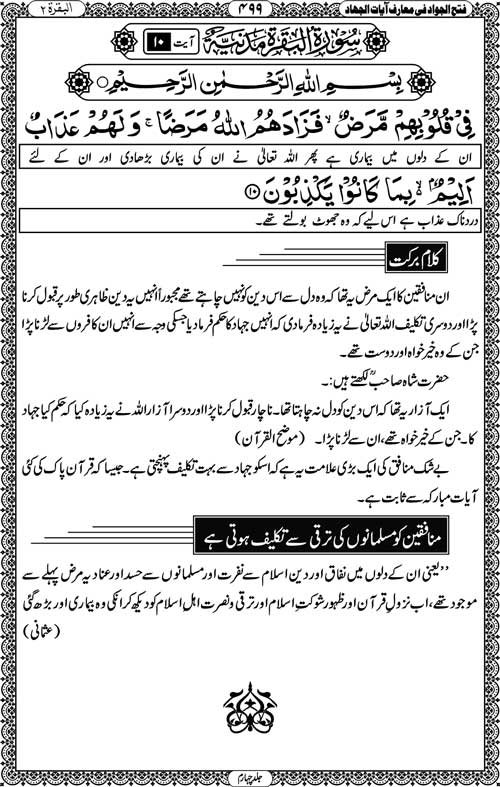 فتح الجواد فی معارف آیات الجهاد ۴۹۹ البقرة ۲
سُوْرَةُ الْبَقَرَةِ مَدَنِيَّةٌ آیت ۱۰
بِسْمِ اللهِ الرَّحْمٰنِ الرَّحِيْمِ
فِيْ قُلُوْبِهِمْ مَّرَضٌ ۙ فَزَادَهُمُ اللهُ مَرَضًا ۚ وَلَهُمْ عَذَابٌ
ان کے دلوں میں بیماری ہے پھر اللہ تعالیٰ نے ان کی بیماری بڑھادی اور ان کے لئے
اَلِيْمٌۢ ۙ بِمَا كَانُوْا يَكْذِبُوْنَ ۱۰
دردناک عذاب ہے اس لیے کہ وہ جھوٹ بولتے تھے۔
کلام برکت
ان منافقین کا ایک مرض یہ تھا کہ وہ دل سے اس دین کو نہیں چاہتے تھے مجبوراً انہیں یہ دین ظاہری طور پر قبول کرنا
پڑا اور دوسری تکلیف اللہ تعالیٰ نے یہ زیادہ فرمادی کہ انہیں جہاد کا حکم فرمادیا جسکی وجہ سے انہیں ان کافروں سے لڑنا پڑا
جن کے وہ خیر خواہ اور دوست تھے۔
حضرت شاہ صاحبؒ لکھتے ہیں:۔
ایک آزار یہ تھا کہ اس دین کو دل نہ چاہتا تھا۔ ناچار قبول کرنا پڑا اور دوسرا آزار اللہ نے یہ زیادہ کیا کہ حکم کیا جہاد
کا۔ جن کے خیر خواہ تھے، ان سے لڑنا پڑا۔ (موضح القرآن)
بے شک منافق کی ایک بڑی علامت یہ ہے کہ اسکو جہاد سے بہت تکلیف پہنچتی ہے۔ جیسا کہ قرآن پاک کی کئی
آیات مبارکہ سے ثابت ہے۔
منافقین کو مسلمانوں کی ترقی سے تکلیف ہوتی ہے
”یعنی ان کے دلوں میں نفاق اور دین اسلام سے نفرت اور مسلمانوں سے حسد اور عناد یہ مرض پہلے سے
موجود تھے، اب نزول قرآن اور ظہور شوکتِ اسلام اور ترقی و نصرت اہلِ اسلام کو دیکھ کر انکی وہ بیماری اور بڑھ گئی
(عثمانی)
جلد چہارم